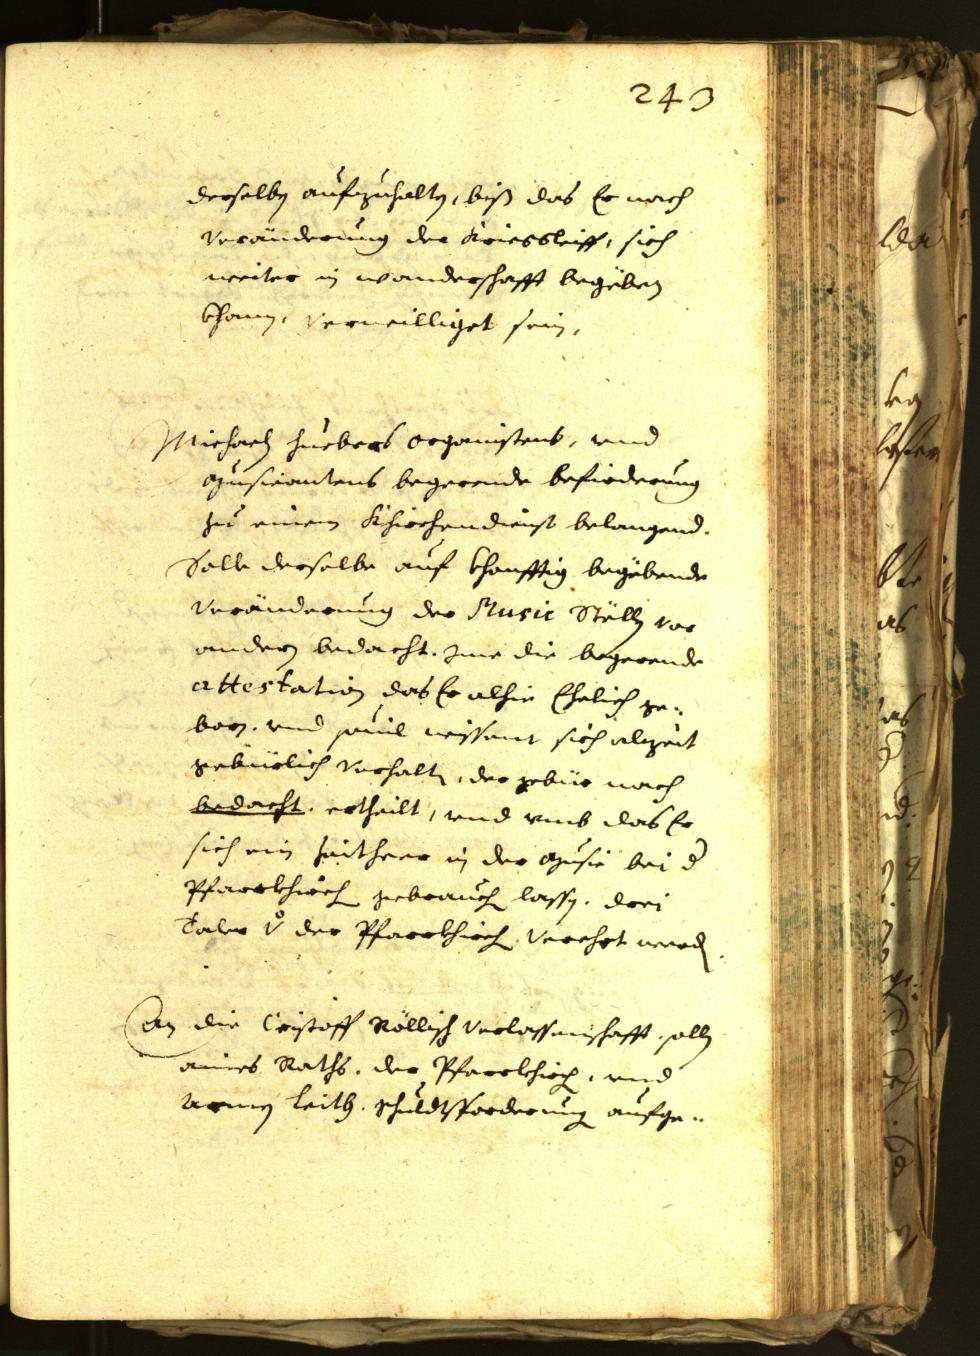 243
derselben aufzuhalten, biß das Er nach
Veränderung der Kriegsleiff, sich
weiter in wanderschafft begeben
khann, verwilliget sein.
Michaeln Huebers organistens, vnd
Musicantens begerende befürderung
zu einem Khirchendienst belangend.
Solle derselbe auf khonfftig begebende
Veränderung der Music Stelln vor
andern bedacht. Ime die begerende
attestation das Er alhie Ehelich ge-
born. vnd souil wissent sich alzeit
gebürlich verhalten, der gebür nach
bedacht. ertheilt, vnd vmb das Er
sich ein zeitheer in der Music bei d
Pfarrkhirch gebrauchen lassen. drei
Taler v der Pfarrkhirch verehrt werden.
An die Cristoff Röllisch Verlassenschafft. solln
aines Raths. der Pfarrkhirch, vnd
Armen leith. schuldtsforderung aufge-